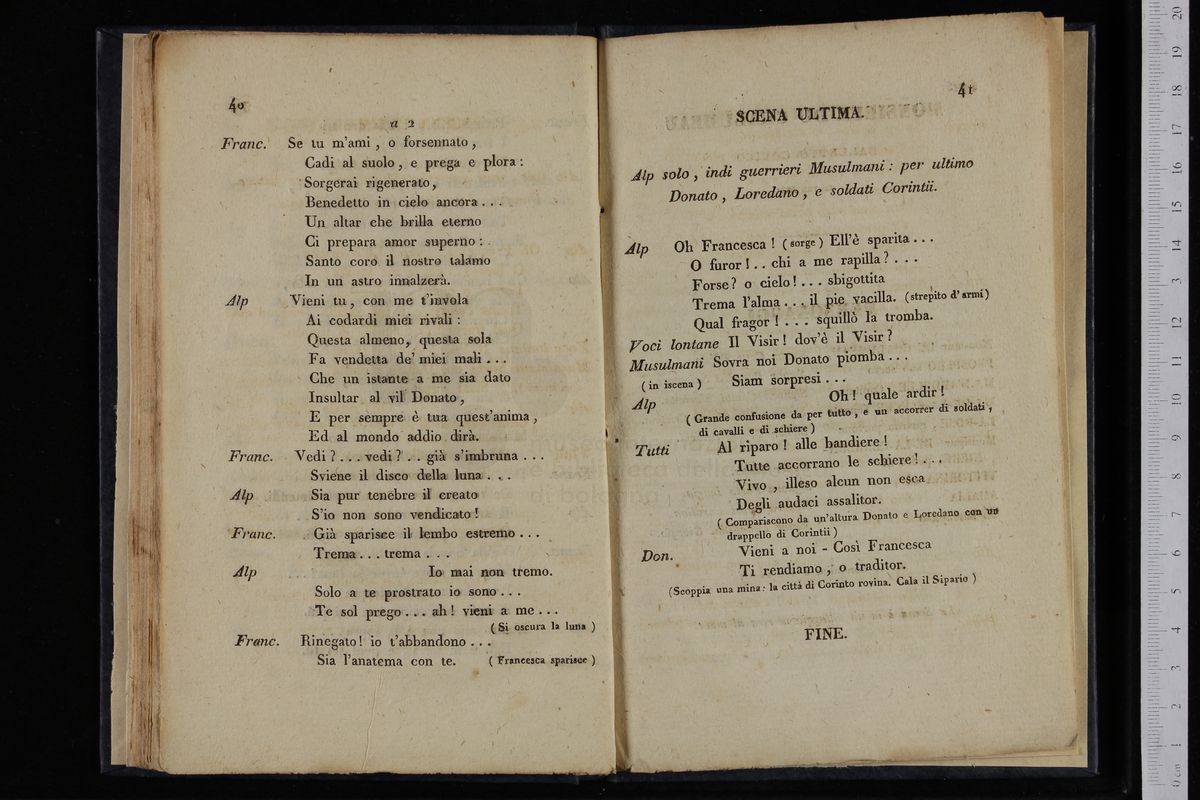 40
a 2
Franc. Se tu m'ami, o forsennato,
Cadi al suolo, e prega e plora:
Sorgerai rigenerato,
Benedetto in cielo ancora...
Un altar che brilla eterno
Ci prepara amor superno:
Santo coro il nostro talamo
In un astro innalzerà.
Alp Vieni tu, con me t'invola
Ai codardi miei rivali:
Questa almeno, questa sola
Fa vendetta de' miei mali...
Che un istante a me sia dato
Insultar al vil Donato,
E per sempre è tua quest'anima,
Ed al mondo addio dirà.
Franc. Vedi?... vedi?.. già s'imbruna...
Sviene il disco della luna...
Alp Sia pur tenebre il creato
S'io non sono vendicato!
Franc. Già sparisce il lembo estremo...
Trema... trema...
Alp Io mai non tremo.
Solo a te prostrato io sono...
Te sol prego... ah! vieni a me...
(Si oscura la luna)
Franc. Rinegato! io t'abbandono...
Sia l'anatema con te. (Francesca sparisce)
41
SCENA ULTIMA.
Alp solo, indi guerrieri Musulmani: per ultimo
Donato, Loredano, e soldati Corintii.
Alp Oh Francesca! (sorge) Ell'è sparita...
O furor!.. chi a me rapilla?...
Forse? o cielo!... sbigottita
Trema l'alma... il pie vacilla. (strepito d'armi)
Qual fragor!... squillò la tromba.
Voci lontane Il Visir! dov'è il Visir?
Musulmani Sovra noi Donato piomba...
(in iscena) Siam sorpresi...
Alp Oh! quale ardir!
(Grande confusione da per tutto, e un accorrer di soldati,
di cavalli e di schiere)
Tutti Al riparo! alle bandiere!
Tutte accorrano le schiere!...
Vivo, illeso alcun non esca
Degli audaci assalitor.
(Compariscono da un'altura Donato e Loredano con un
drappello di Corintii)
Don. Vieni a noi - Così Francesca
Ti rendiamo, o traditor.
(Scoppia una mina: la città di Corinto rovina. Cala il Sipario)
FINE.
0 cm 1 2 3 4 5 6 7 8 9 10 11 12 13 14 15 16 17 18 19 20